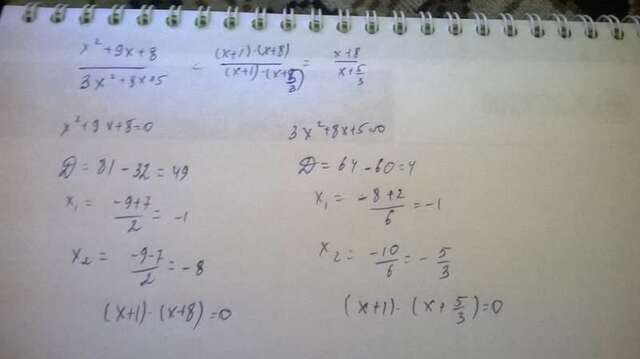 x² + 9x + 8 / 3x² + 8x + 5 = (x+1)·(x+8) / (x+1)·(x+5/3) = x+8 / x+5/3
x² + 9x + 8 = 0
D = 81 - 32 = 49
x₁ = -9+7 / 2 = -1
x₂ = -9-7 / 2 = -8
(x+1)·(x+8) = 0
3x² + 8x + 5 = 0
D = 64 - 60 = 4
x₁ = -8+2 / 6 = -1
x₂ = -10 / 6 = -5/3
(x+1)·(x+5/3) = 0